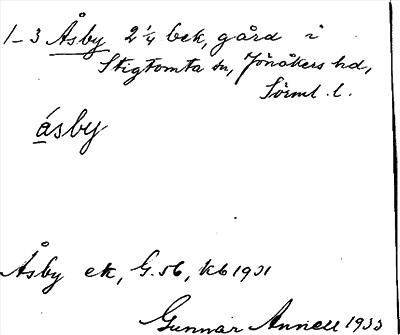 1-3 Åsby 2 1/4 bek, gård i
Stigtomta sn, Jönåkers hd,
Sörml. l.
ásby
Åsby ek, G. 56, kb 1931
Gunnar Annell 1933